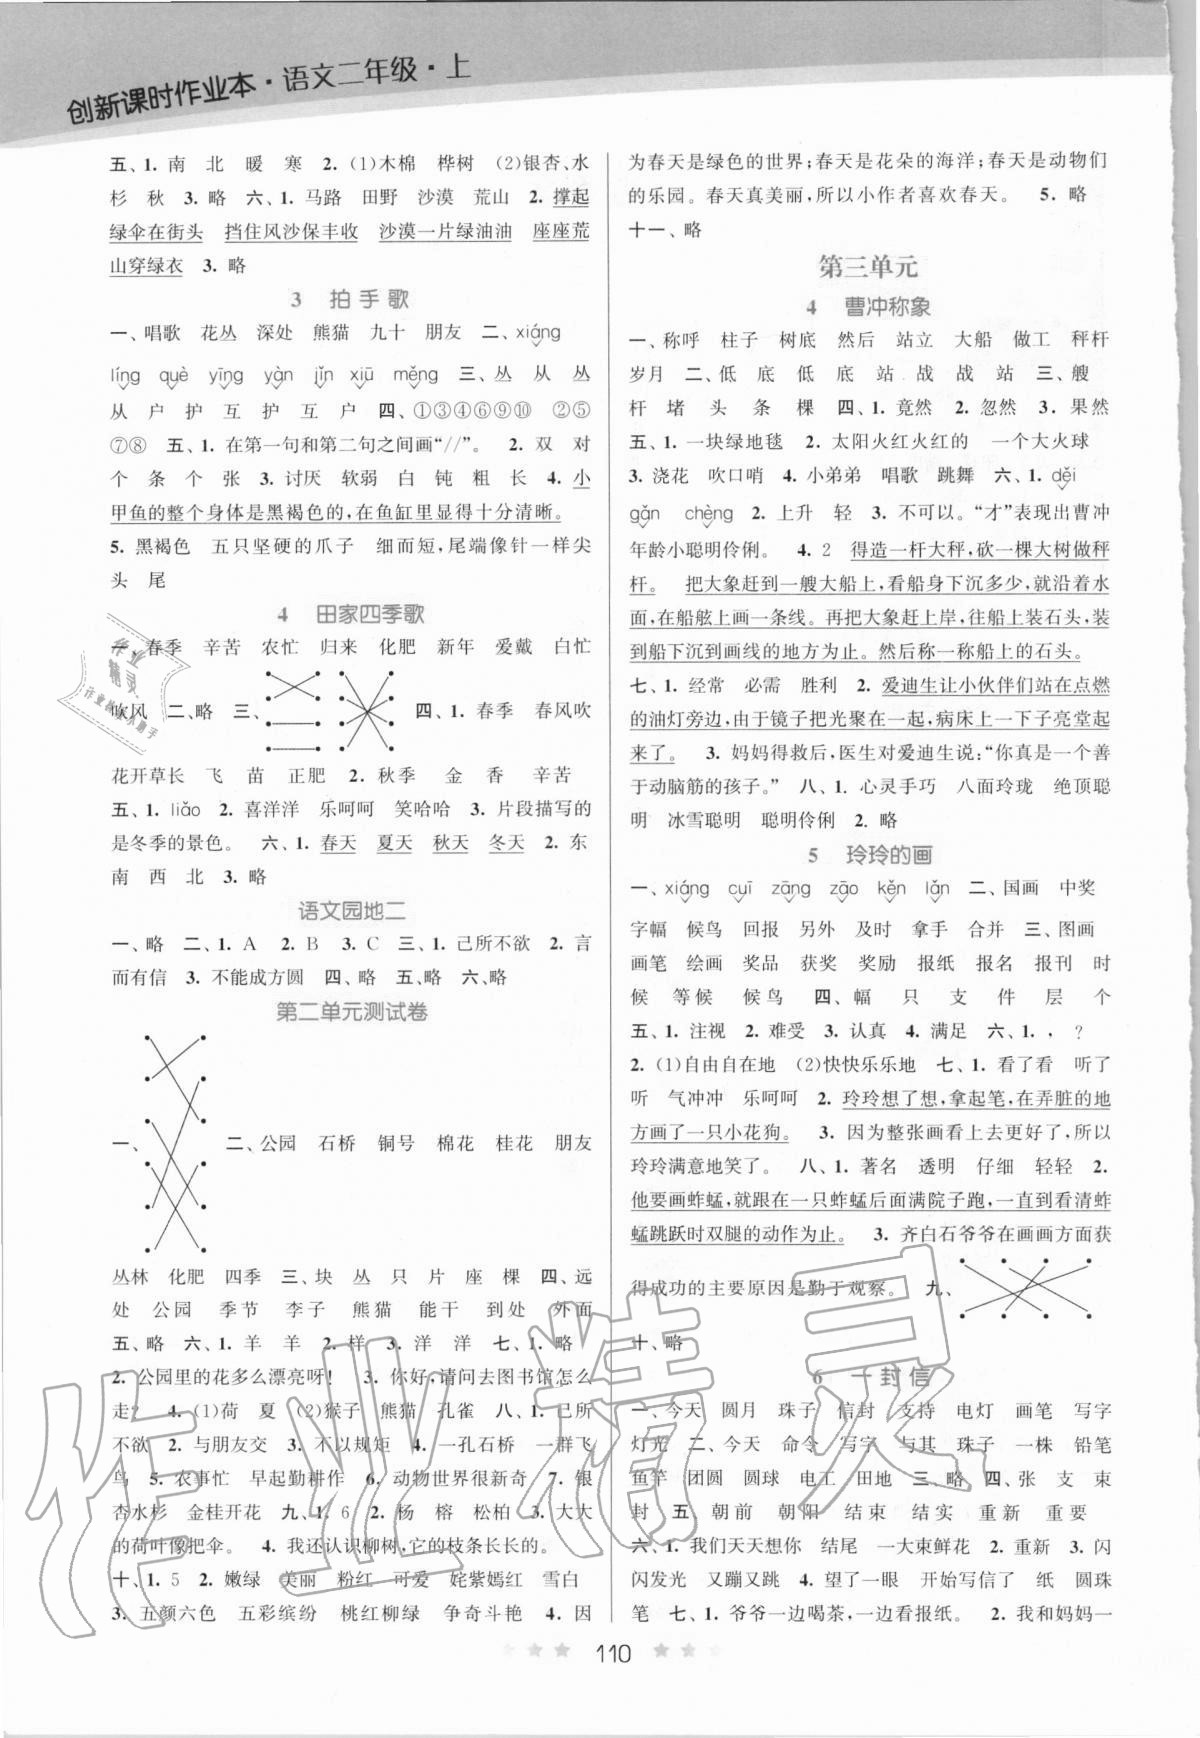 创新课时作业本·语文二年级·上
五、1. 南 北 暖 寒 2. (1)木棉 桦树 (2)银杏、水
杉 秋 3. 略 六、1. 马路 田野 沙漠 荒山 2. 撑起
绿伞在街头 挡住风沙保丰收 沙漠一片绿油油 座座荒
山穿绿衣 3. 略
3 拍手歌
一、唱歌 花丛 深处 熊猫 九十 朋友 二、xiáng
líng què yīng yàn jǐn xiū měng 三、丛 从 丛
从 户 护 互 护 互 户 四、①③④⑥⑨⑩ ②⑤
⑦⑧ 五、1. 在第一句和第二句之间画“//”。 2. 双 对
个 条 个 张 3. 讨厌 软弱 白 钝 粗 长 4. 小
甲鱼的整个身体是黑褐色的,在鱼缸里显得十分清晰。
5. 黑褐色 五只坚硬的爪子 细而短,尾端像针一样尖
头 尾
4 田家四季歌
一、春季 辛苦 农忙 归来 化肥 新年 爱戴 白忙
吹风 二、略 三、 四、1. 春季 春风吹
花开草长 飞 苗 正肥 2. 秋季 金 香 辛苦
五、1. liǎo 2. 喜洋洋 乐呵呵 笑哈哈 3. 片段描写的
是冬季的景色。 六、1. 春天 夏天 秋天 冬天 2. 东
南 西 北 3. 略
语文园地二
一、略 二、1. A 2. B 3. C 三、1. 己所不欲 2. 言
而有信 3. 不能成方圆 四、略 五、略 六、略
第二单元测试卷
一、 二、公园 石桥 铜号 棉花 桂花 朋友
丛林 化肥 四季 三、块 丛 只 片 座 棵 四、远
处 公园 季节 李子 熊猫 能干 到处 外面
五、略 六、1. 羊 羊 2. 样 3. 洋 洋 七、1. 略
2. 公园里的花多么漂亮呀! 3. 你好,请问去图书馆怎么
走? 4. (1)荷 夏 (2)猴子 熊猫 孔雀 八、1. 己所
不欲 2. 与朋友交 3. 不以规矩 4. 一孔石桥 一群飞
鸟 5. 农事忙 早起勤耕作 6. 动物世界很新奇 7. 银
杏水杉 金桂开花 九、1. 6 2. 杨 榕 松柏 3. 大大
的荷叶像把伞。 4. 我还认识柳树,它的枝条长长的。
十、1. 5 2. 嫩绿 美丽 粉红 可爱 姹紫嫣红 雪白
3. 五颜六色 五彩缤纷 桃红柳绿 争奇斗艳 4. 因
为春天是绿色的世界;春天是花朵的海洋;春天是动物们
的乐园。春天真美丽,所以小作者喜欢春天。 5. 略
十一、略
第三单元
4 曹冲称象
一、称呼 柱子 树底 然后 站立 大船 做工 秤杆
岁月 二、低 底 低 底 站 战 战 站 三、艘
杆 堵 头 条 棵 四、1. 竟然 2. 忽然 3. 果然
五、1. 一块绿地毯 2. 太阳火红火红的 一个大火球
3. 浇花 吹口哨 4. 小弟弟 唱歌 跳舞 六、1. děi
gǎn chèng 2. 上升 轻 3. 不可以。“才”表现出曹冲
年龄小聪明伶俐。 4. 2 得造一杆大秤,砍一棵大树做秤
杆。 把大象赶到一艘大船上,看船身下沉多少,就沿着水
面,在船舷上画一条线。再把大象赶上岸,往船上装石头,装
到船下沉到画线的地方为止。然后称一称船上的石头。
七、1. 经常 必需 胜利 2. 爱迪生让小伙伴们站在点燃
的油灯旁边,由于镜子把光聚在一起,病床上一下子亮堂起
来了。 3. 妈妈得救后,医生对爱迪生说:“你真是一个善
于动脑筋的孩子。” 八、1. 心灵手巧 八面玲珑 绝顶聪
明 冰雪聪明 聪明伶俐 2. 略
5 玲玲的画
一、xiáng cuī zāng zāo kěn lǎn 二、国画 中奖
字幅 候鸟 回报 另外 及时 拿手 合并 三、图画
画笔 绘画 奖品 获奖 奖励 报纸 报名 报刊 时
候 等候 候鸟 四、幅 只 支 件 层 个
五、1. 注视 2. 难受 3. 认真 4. 满足 六、1. , ?
2. (1)自由自在地 (2)快快乐乐地 七、1. 看了看 听了
听 气冲冲 乐呵呵 2. 玲玲想了想,拿起笔,在弄脏的地
方画了一只小花狗。 3. 因为整张画看上去更好了,所以
玲玲满意地笑了。 八、1. 著名 透明 仔细 轻轻 2.
他要画蚱蜢,就跟在一只蚱蜢后面满院子跑,一直到看清蚱
蜢跳跃时双腿的动作为止。 3. 齐白石爷爷在画画方面获
得成功的主要原因是勤于观察。 九、
十、略
6 一封信
一、今天 圆月 珠子 信封 支持 电灯 画笔 写字
灯光 二、今天 命令 写字 与其 珠子 一株 铅笔
鱼竿 团圆 圆球 电工 田地 三、略 四、张 支 束
封 五、朝前 朝阳 结束 结实 重新 重要
六、1. 我们天天想你 结尾 一大束鲜花 2. 重新 3. 闪
闪发光 又蹦又跳 4. 望了一眼 开始写信了 纸 圆珠
笔 七、1. 爷爷一边喝茶,一边看报纸。 2. 我和妈妈一
110
作业精灵